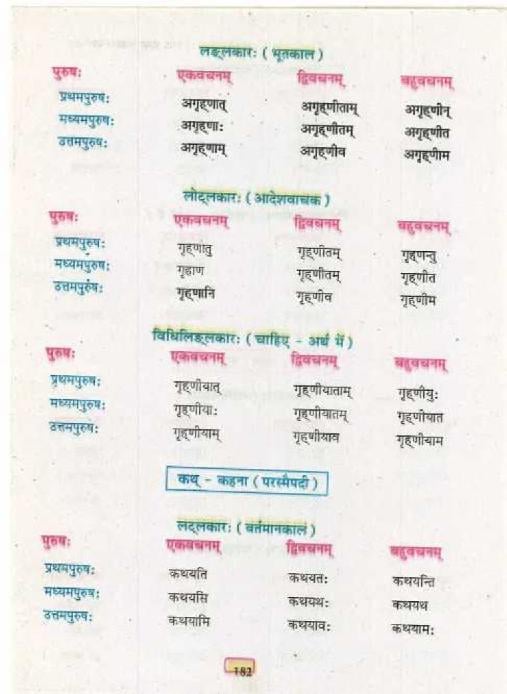 लङ्लकारः ( भूतकाल )
पुरुषः एकवचनम् द्विवचनम् बहुवचनम्
प्रथमपुरुषः अगृह्णात् अगृह्णीताम् अगृह्णीन्
मध्यमपुरुषः अगृह्णाः अगृह्णीतम् अगृह्णीत
उत्तमपुरुषः अगृह्णाम् अगृह्णीव अगृह्णीम
लोट्लकारः ( आदेशवाचक )
पुरुषः एकवचनम् द्विवचनम् बहुवचनम्
प्रथमपुरुषः गृह्णातु गृह्णीतम् गृह्णन्तु
मध्यमपुरुषः गृहाण गृह्णीतम् गृह्णीत
उत्तमपुरुषः गृह्णानि गृह्णीव गृह्णीम
विधिलिङ्लकारः ( चाहिए - अर्थ में )
पुरुषः एकवचनम् द्विवचनम् बहुवचनम्
प्रथमपुरुषः गृह्णीयात् गृह्णीयाताम् गृह्णीयुः
मध्यमपुरुषः गृह्णीयाः गृह्णीयातम् गृह्णीयात
उत्तमपुरुषः गृह्णीयाम् गृह्णीयाव गृह्णीयाम
कथ् - कहना ( परस्मैपदी )
लट्लकारः ( वर्तमानकाल )
पुरुषः एकवचनम् द्विवचनम् बहुवचनम्
प्रथमपुरुषः कथयति कथयतः कथयन्ति
मध्यमपुरुषः कथयसि कथयथः कथयथ
उत्तमपुरुषः कथयामि कथयावः कथयामः
182